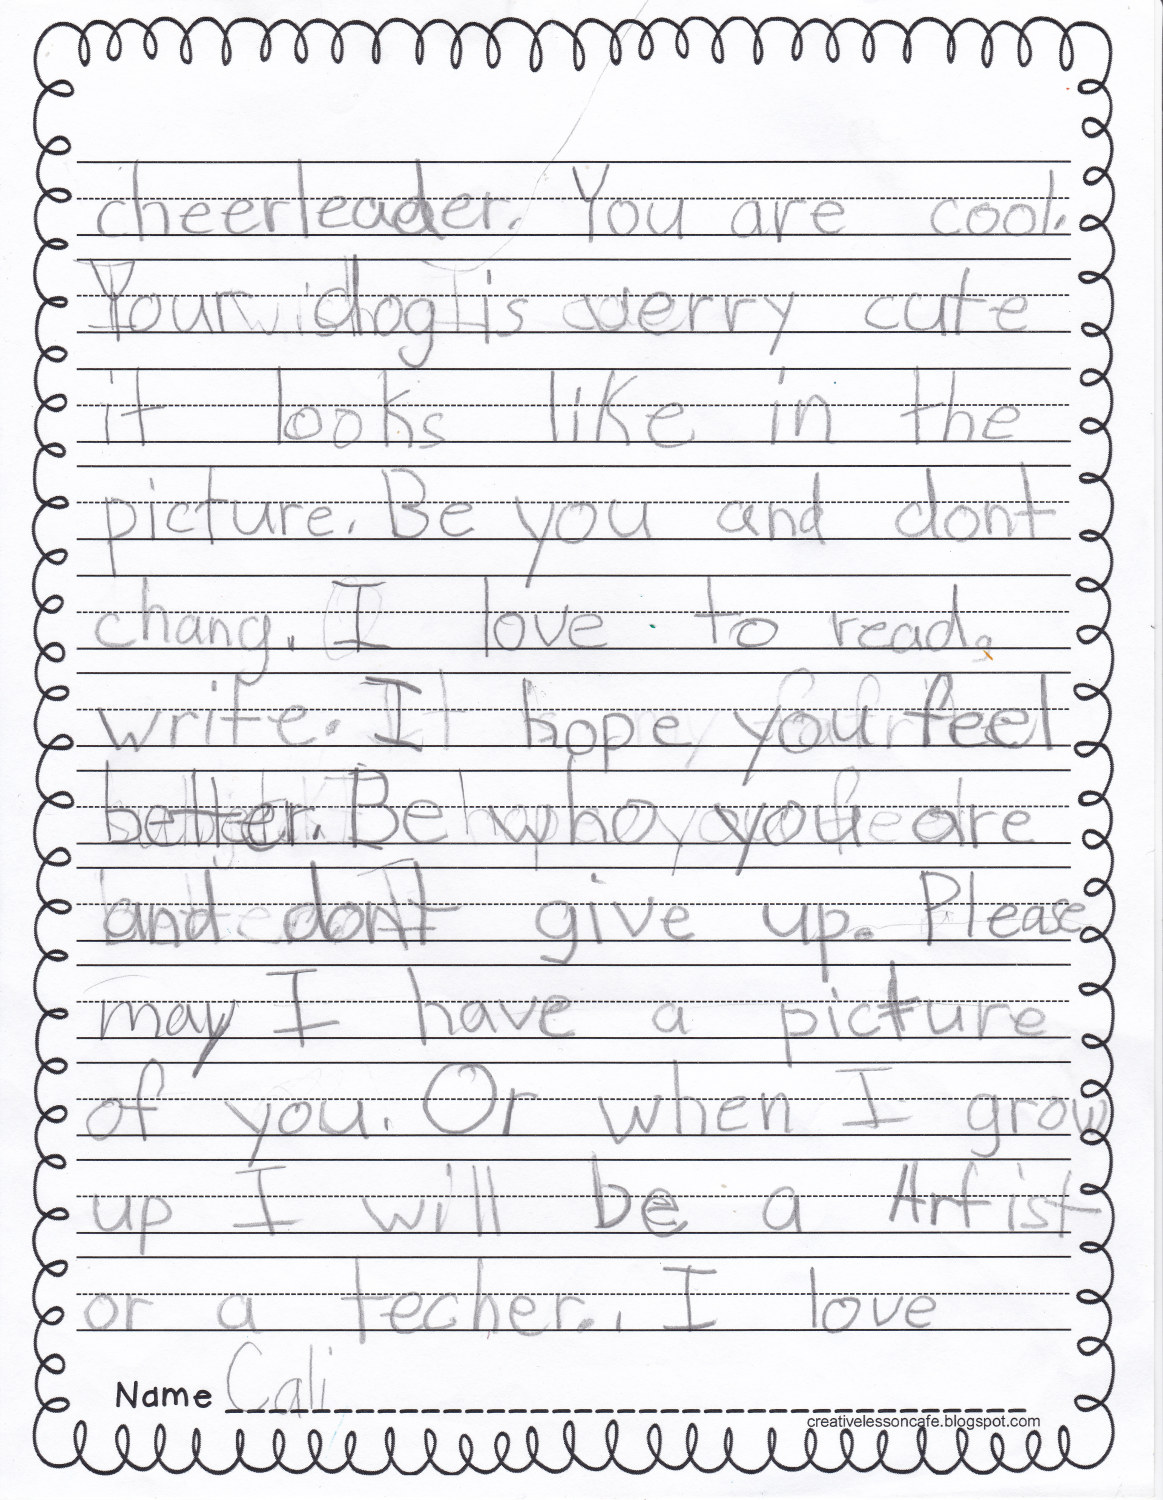 cheerleader. You are cool.
Your dog is verry cute
it looks like in the
picture. Be you and dont
chang. I love to read,
write. I hope you feel
better. Be who you are
and dont give up. Please
may I have a picture
of you. Or when I grow
up I will be a Artist
or a techer. I love
Name Cali
creativelessoncafe.blogspot.com